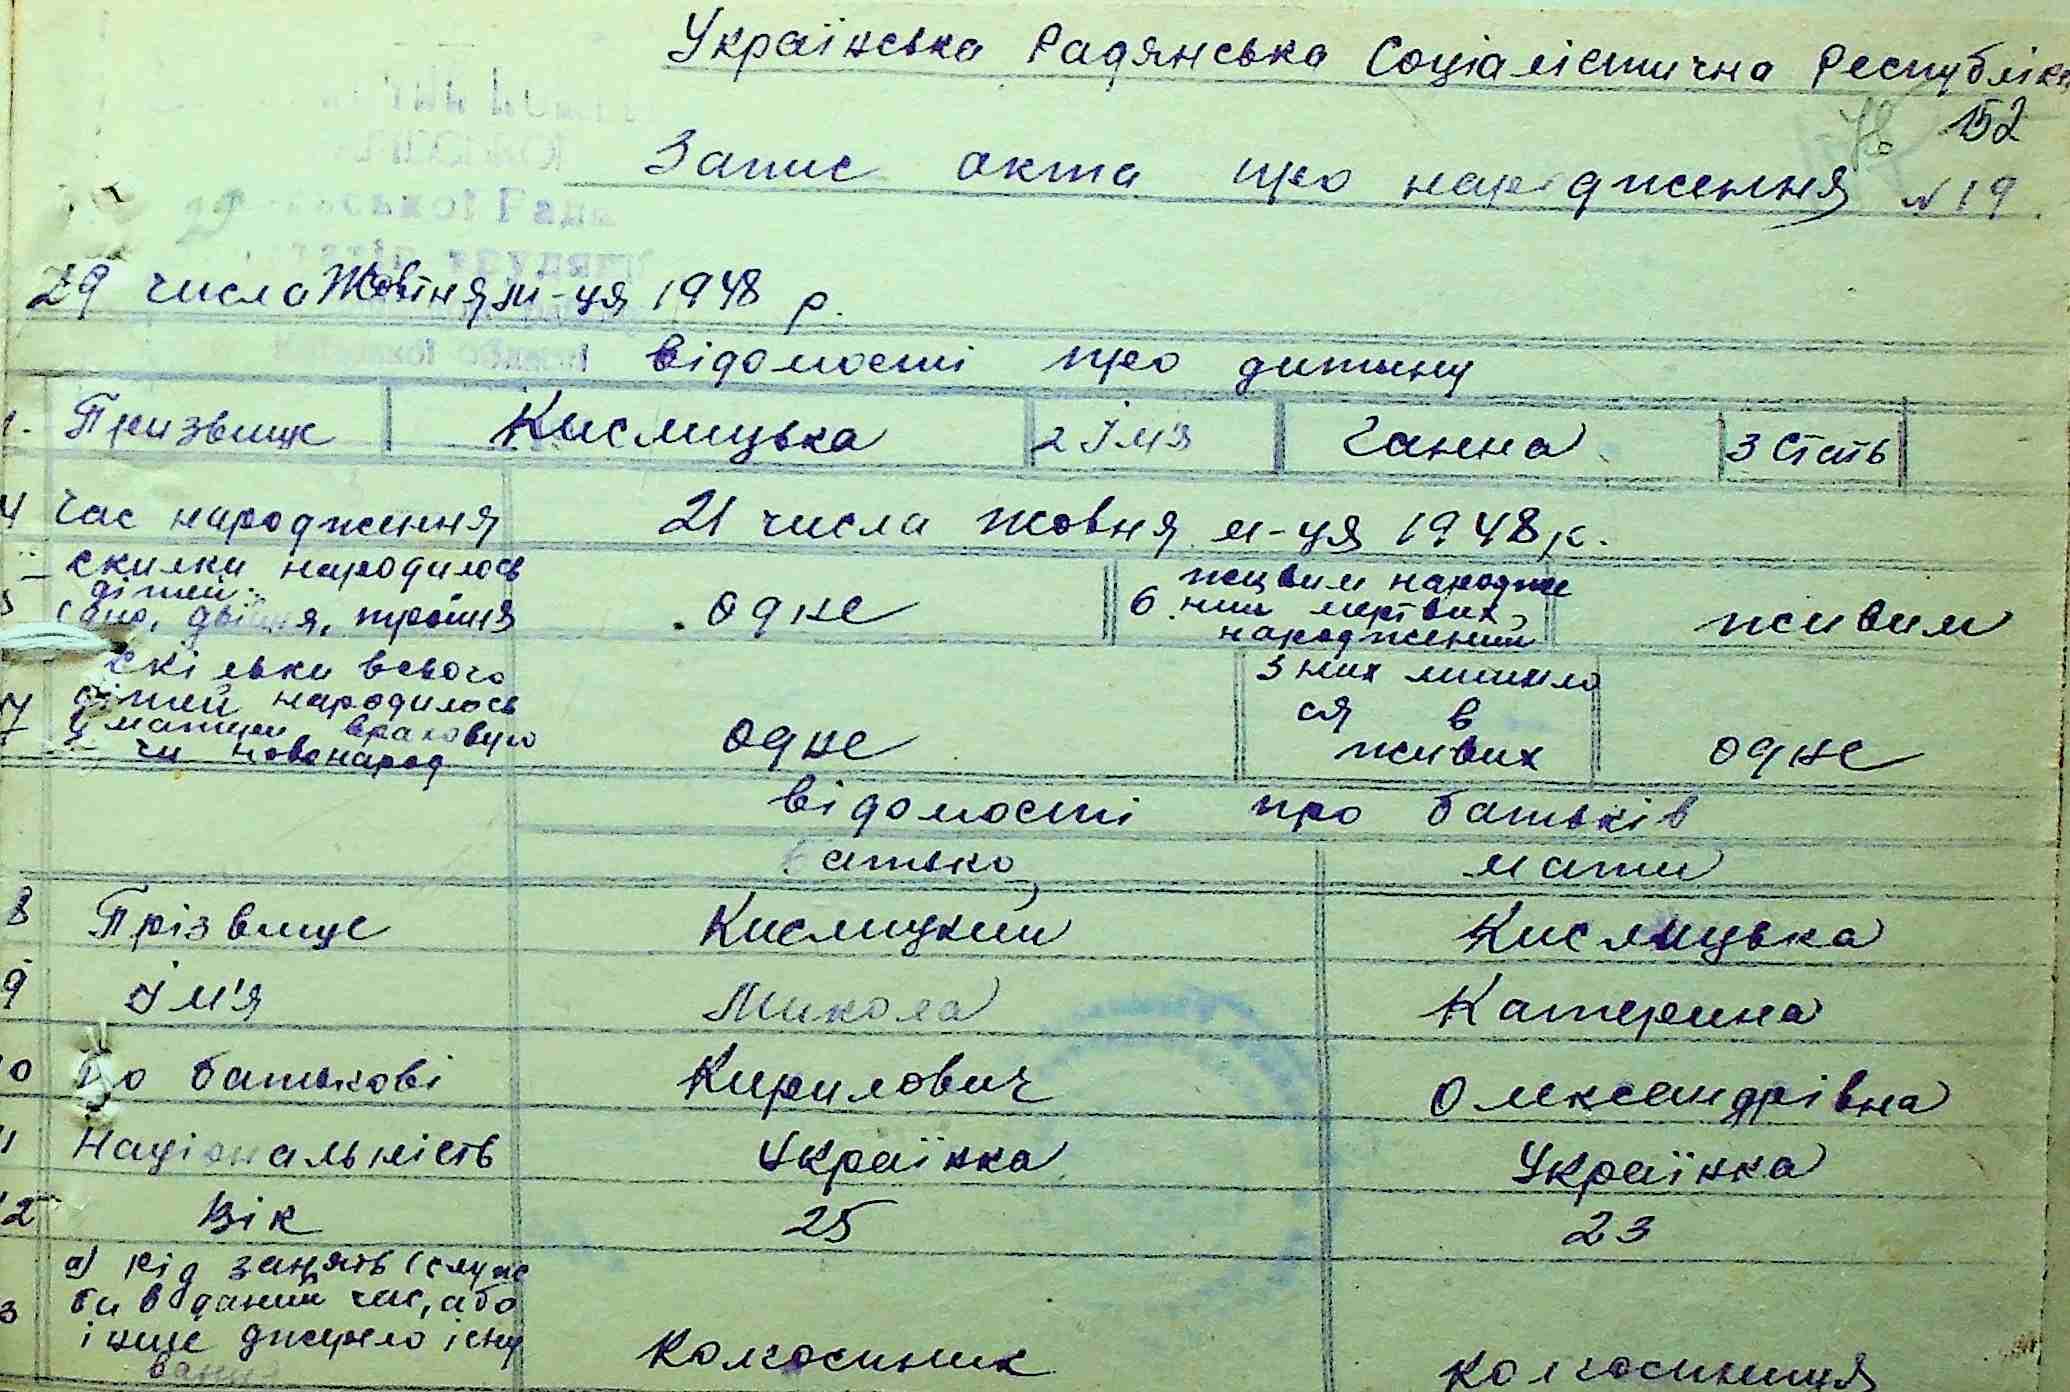 Українська Радянська Соціалістична Республіка
152
Запис акта про народження № 19.
29 числа Жовтня м-ця 1948 р.
відомості про дитину
1. Призвище Кислицька 2 Ім'я Ганна 3 Стать
4 Час народження 21 числа жовня м-ця 1948 р.
5 скилки народилось дітей: одно, двійня, тройня одне 6. живим народже ний мертвих народжений живим
7 скільки всього дітей народилось у матери враховуюо чи новонарод одне з них лишило ся в живих одне
відомості про батьків
батько мати
8 Прізвище Кислицкий Кислицька
9 Ім'я Микола Катерина
10 По батькові Кирилович Олександрівна
11 Національність Українка Українка
12 Вік 25 23
а) рід занять (служ
би в даний час, або
3 інше джерело існу
вання Колгоспник колгоспниця